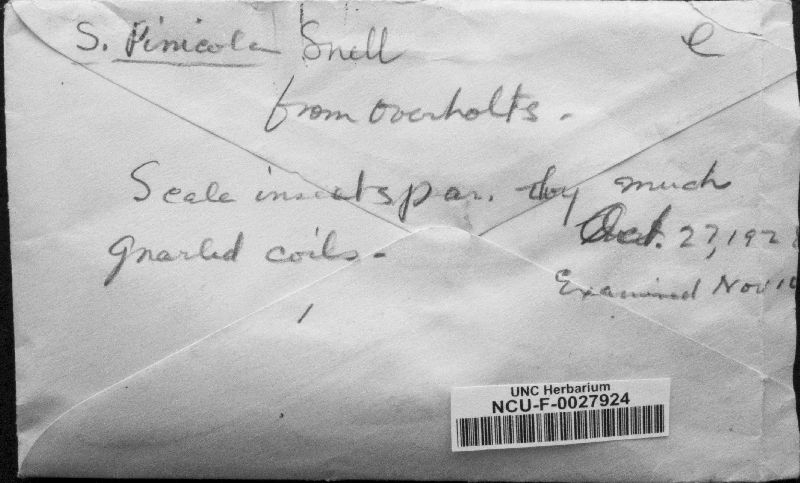 S. Pinicola Snell
e
from Overholts.
Scale insects par. by much
gnarled coils.
Oct. 27, 192
Examined Nov 10
UNC Herbarium
NCU-F-0027924